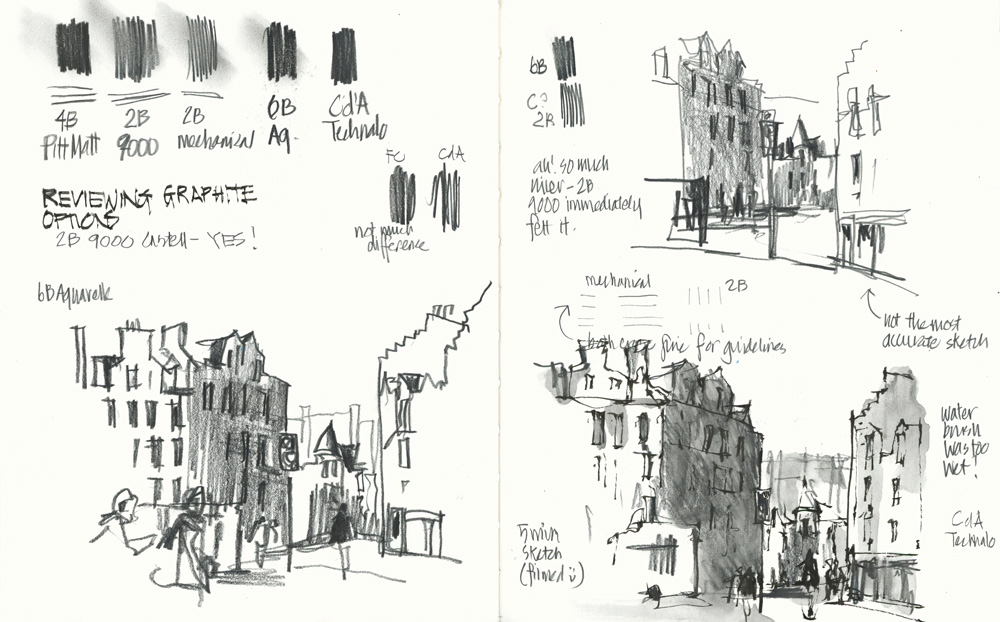 4B
Pitt Matt
2B
9000
2B
mechanical
6B
Aq.
Cd'A
Technalo
REVIEWING GRAPHITE
OPTIONS
2B 9000 Castell - YES!
FC
CdA
not much
difference
6B Aquarelle
6B
C?
2B
ah! so much
nicer - 2B
9000 immediately
felt it.
mechanical
2B
both erase fine for guidelines
not the most
accurate sketch
5 min
sketch
(filmed :)
water
brush
was too
wet!
CdA
Technalo